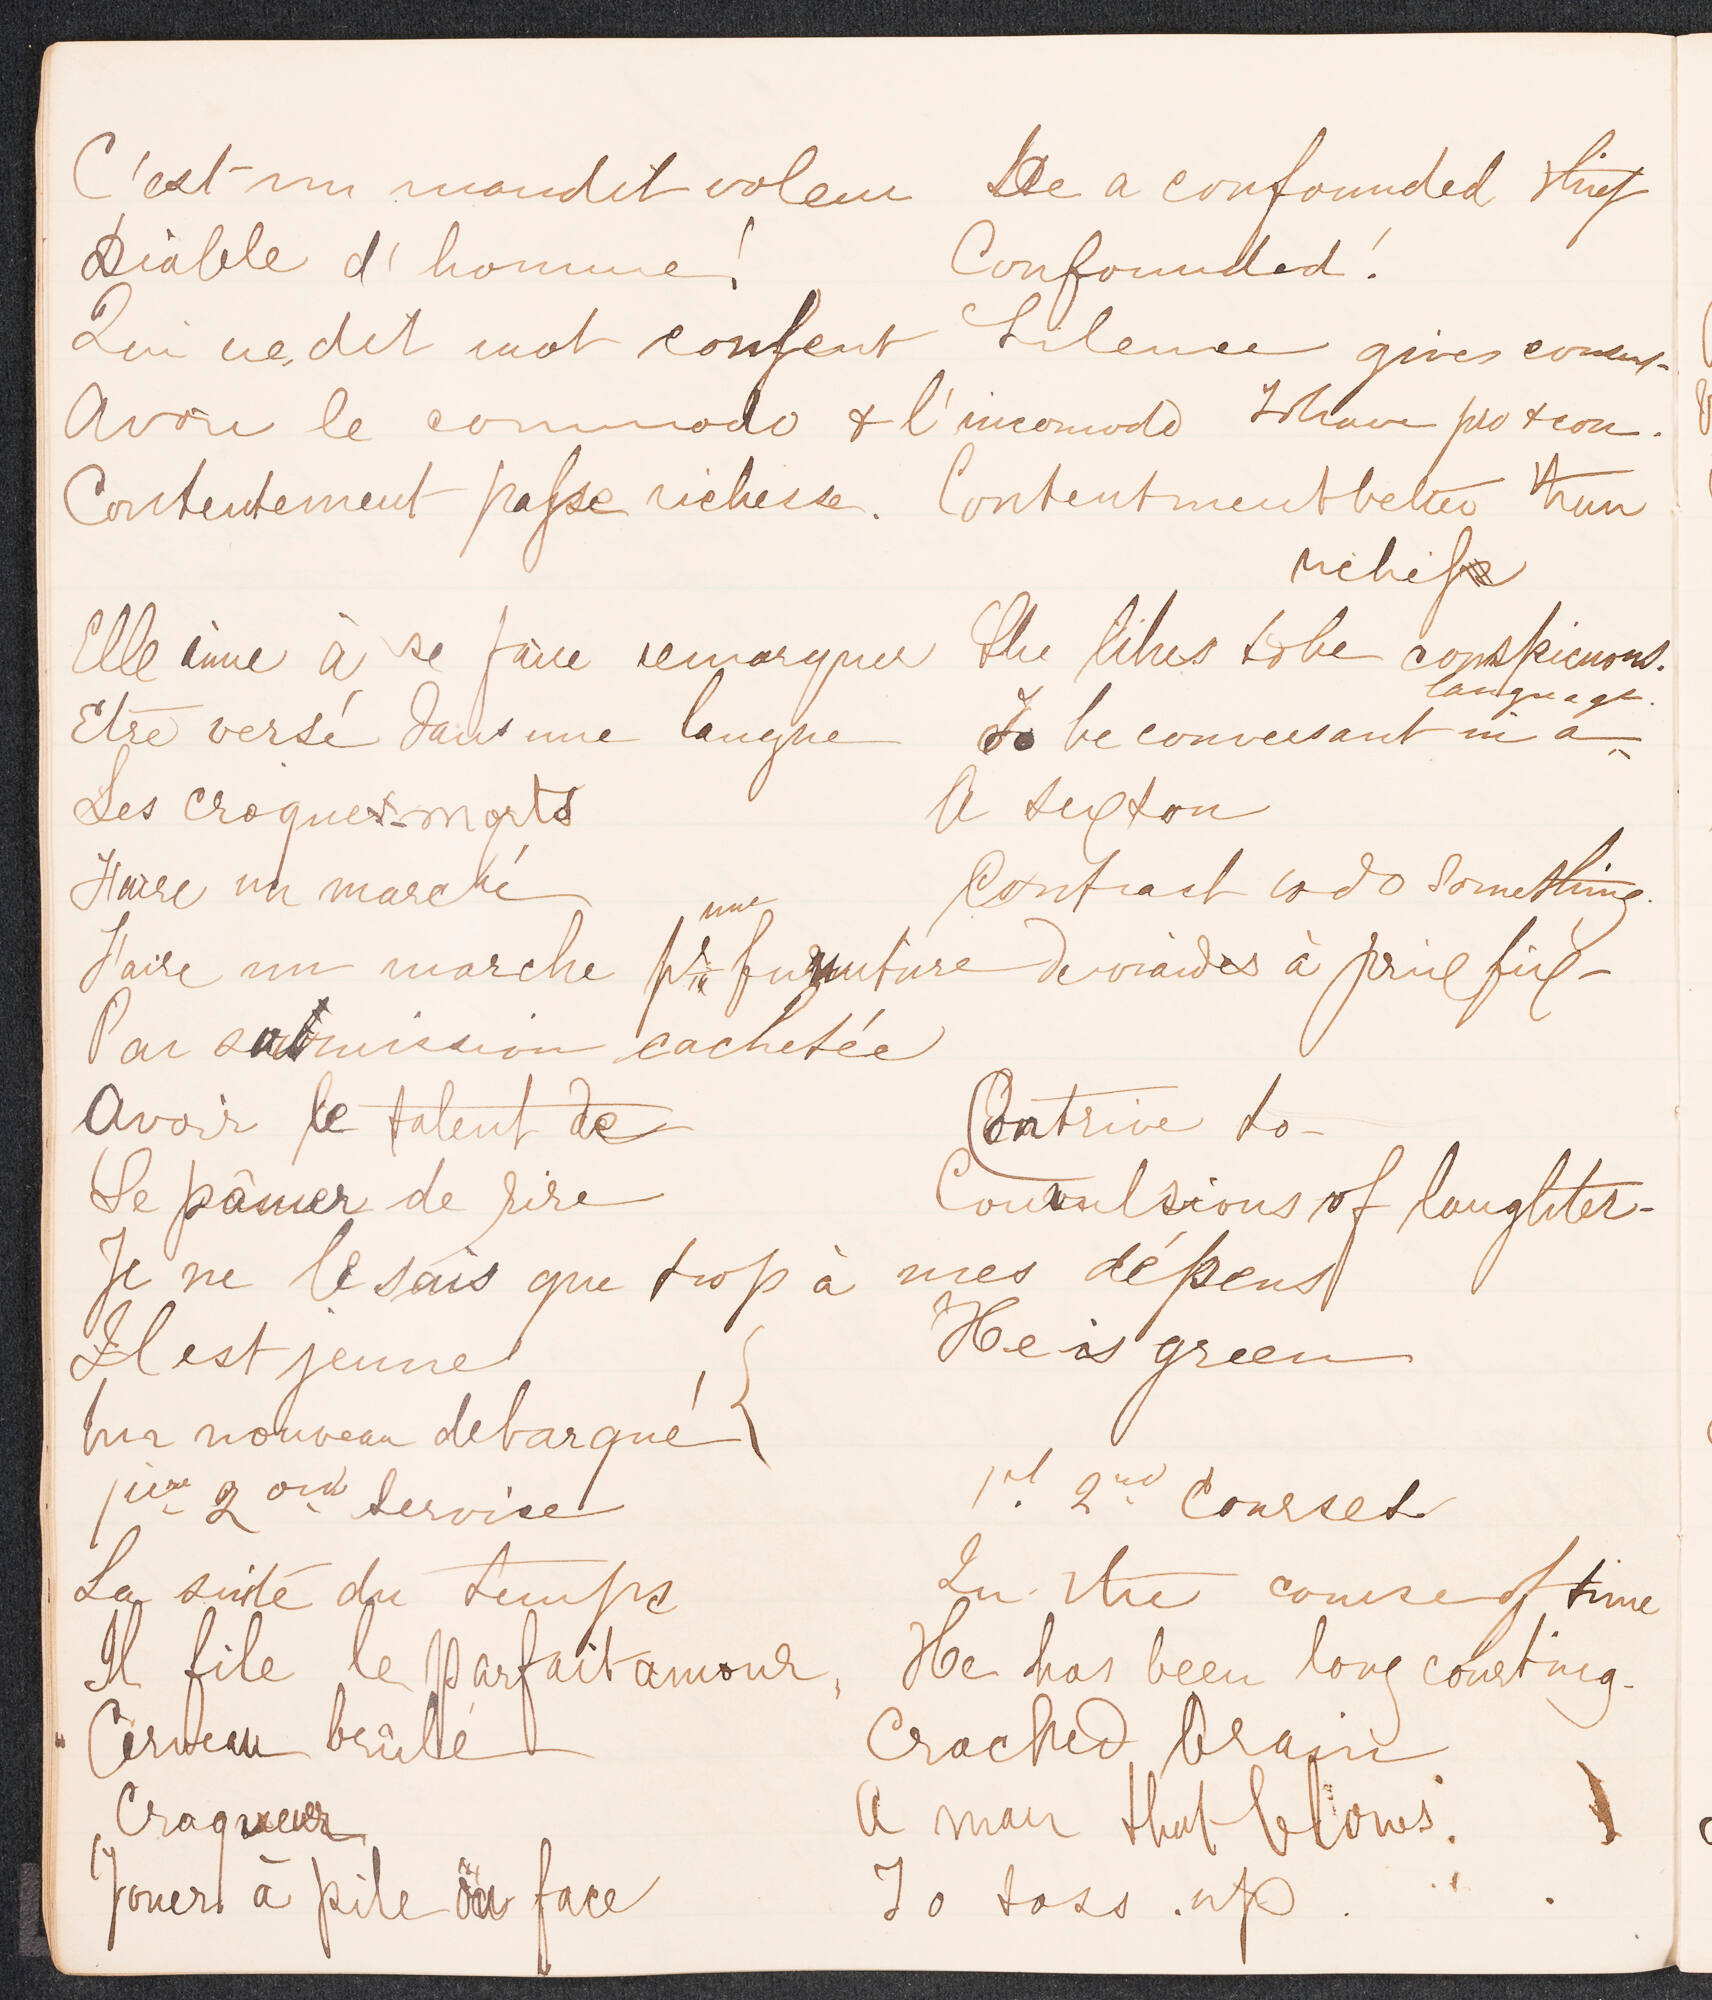 C'est un maudit voleur He a confounded thief
Diable d'homme! Confounded!
Qui ne dit mot consent Silence gives consent-
Avoir le commodo & l'incomodo To have pro & con.
Contentement passe richesse. Contentment better than
richess
Elle aime à se faire remarquer She likes to be conspicuous.
language.
Etre versé dans une langue To be conversant in a
Les croques-morts A sexton
Faire un marché Contract to do something.
une
Faire un marche pr furniture de viandes à prix fix-
Par submission cachetée
Avoir le talent de Contrive to-
Se pâmer de rire Convulsions of laughter-
Je ne le sais que trop à mes dépens
Il est jeune He is green
Un nouveau debarqué
1ière 2ond service 1st. 2nd courses.
La suite du temps In the course of time
Il file le parfait amour, He has been long courting.
Cerveau brûlé Cracked brain
Craqueur A man that blows.
Jouer à pile ou face To toss up.